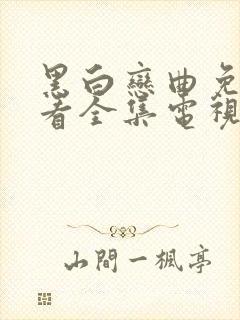 黑白戀曲免
看全集電視
山間一楓亭